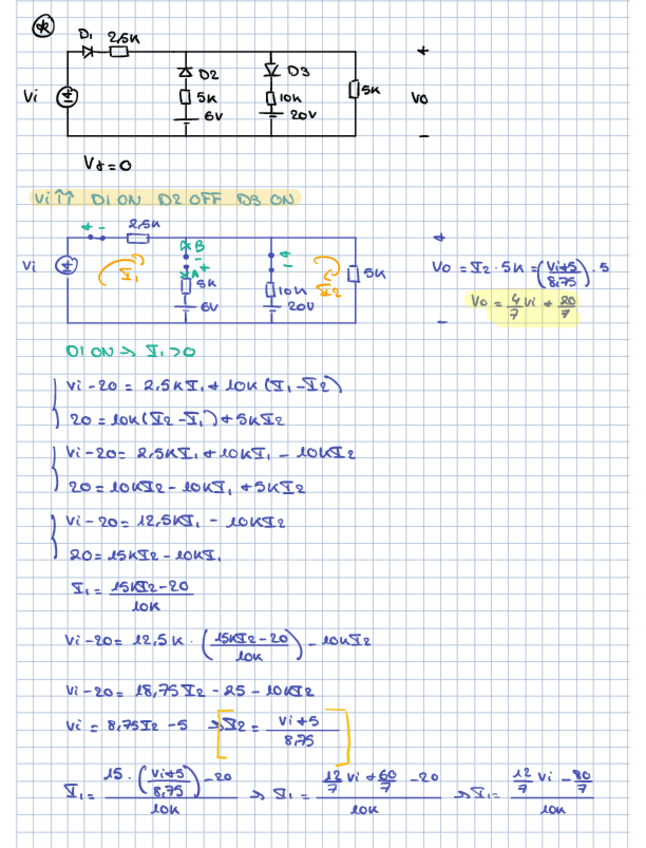 *
D1 2,5K
D2
D3
Vi
5K
10K
5K
Vo
6V
20V
+
-
Vγ=0
Vi↑↑ D1 ON D2 OFF D3 ON
+ - 2,5K
Vi
I1
B
-
+
A
5K
6V
+
-
10K
20V
I2
5K
+
-
Vo = I2 · 5K = (Vi+5 / 8,75) · 5
Vo = 4/7 Vi + 20/7
D1 ON → I1>0
Vi-20 = 2,5K I1 + 10K (I1-I2)
20 = 10K (I2-I1) + 5K I2
Vi-20 = 2,5K I1 + 10K I1 - 10K I2
20 = 10K I2 - 10K I1 + 5K I2
Vi-20 = 12,5K I1 - 10K I2
20 = 15K I2 - 10K I1
I1 = 15K I2 - 20 / 10K
Vi-20 = 12,5K · (15K I2 - 20 / 10K) - 10K I2
Vi-20 = 18,75 I2 - 25 - 10K I2
Vi = 8,75 I2 - 5 → I2 = Vi+5 / 8,75
I1 = 15 · (Vi+5 / 8,75) - 20 / 10K → I1 = 12/7 Vi + 60/7 - 20 / 10K → I1 = 12/7 Vi - 80/7 / 10K